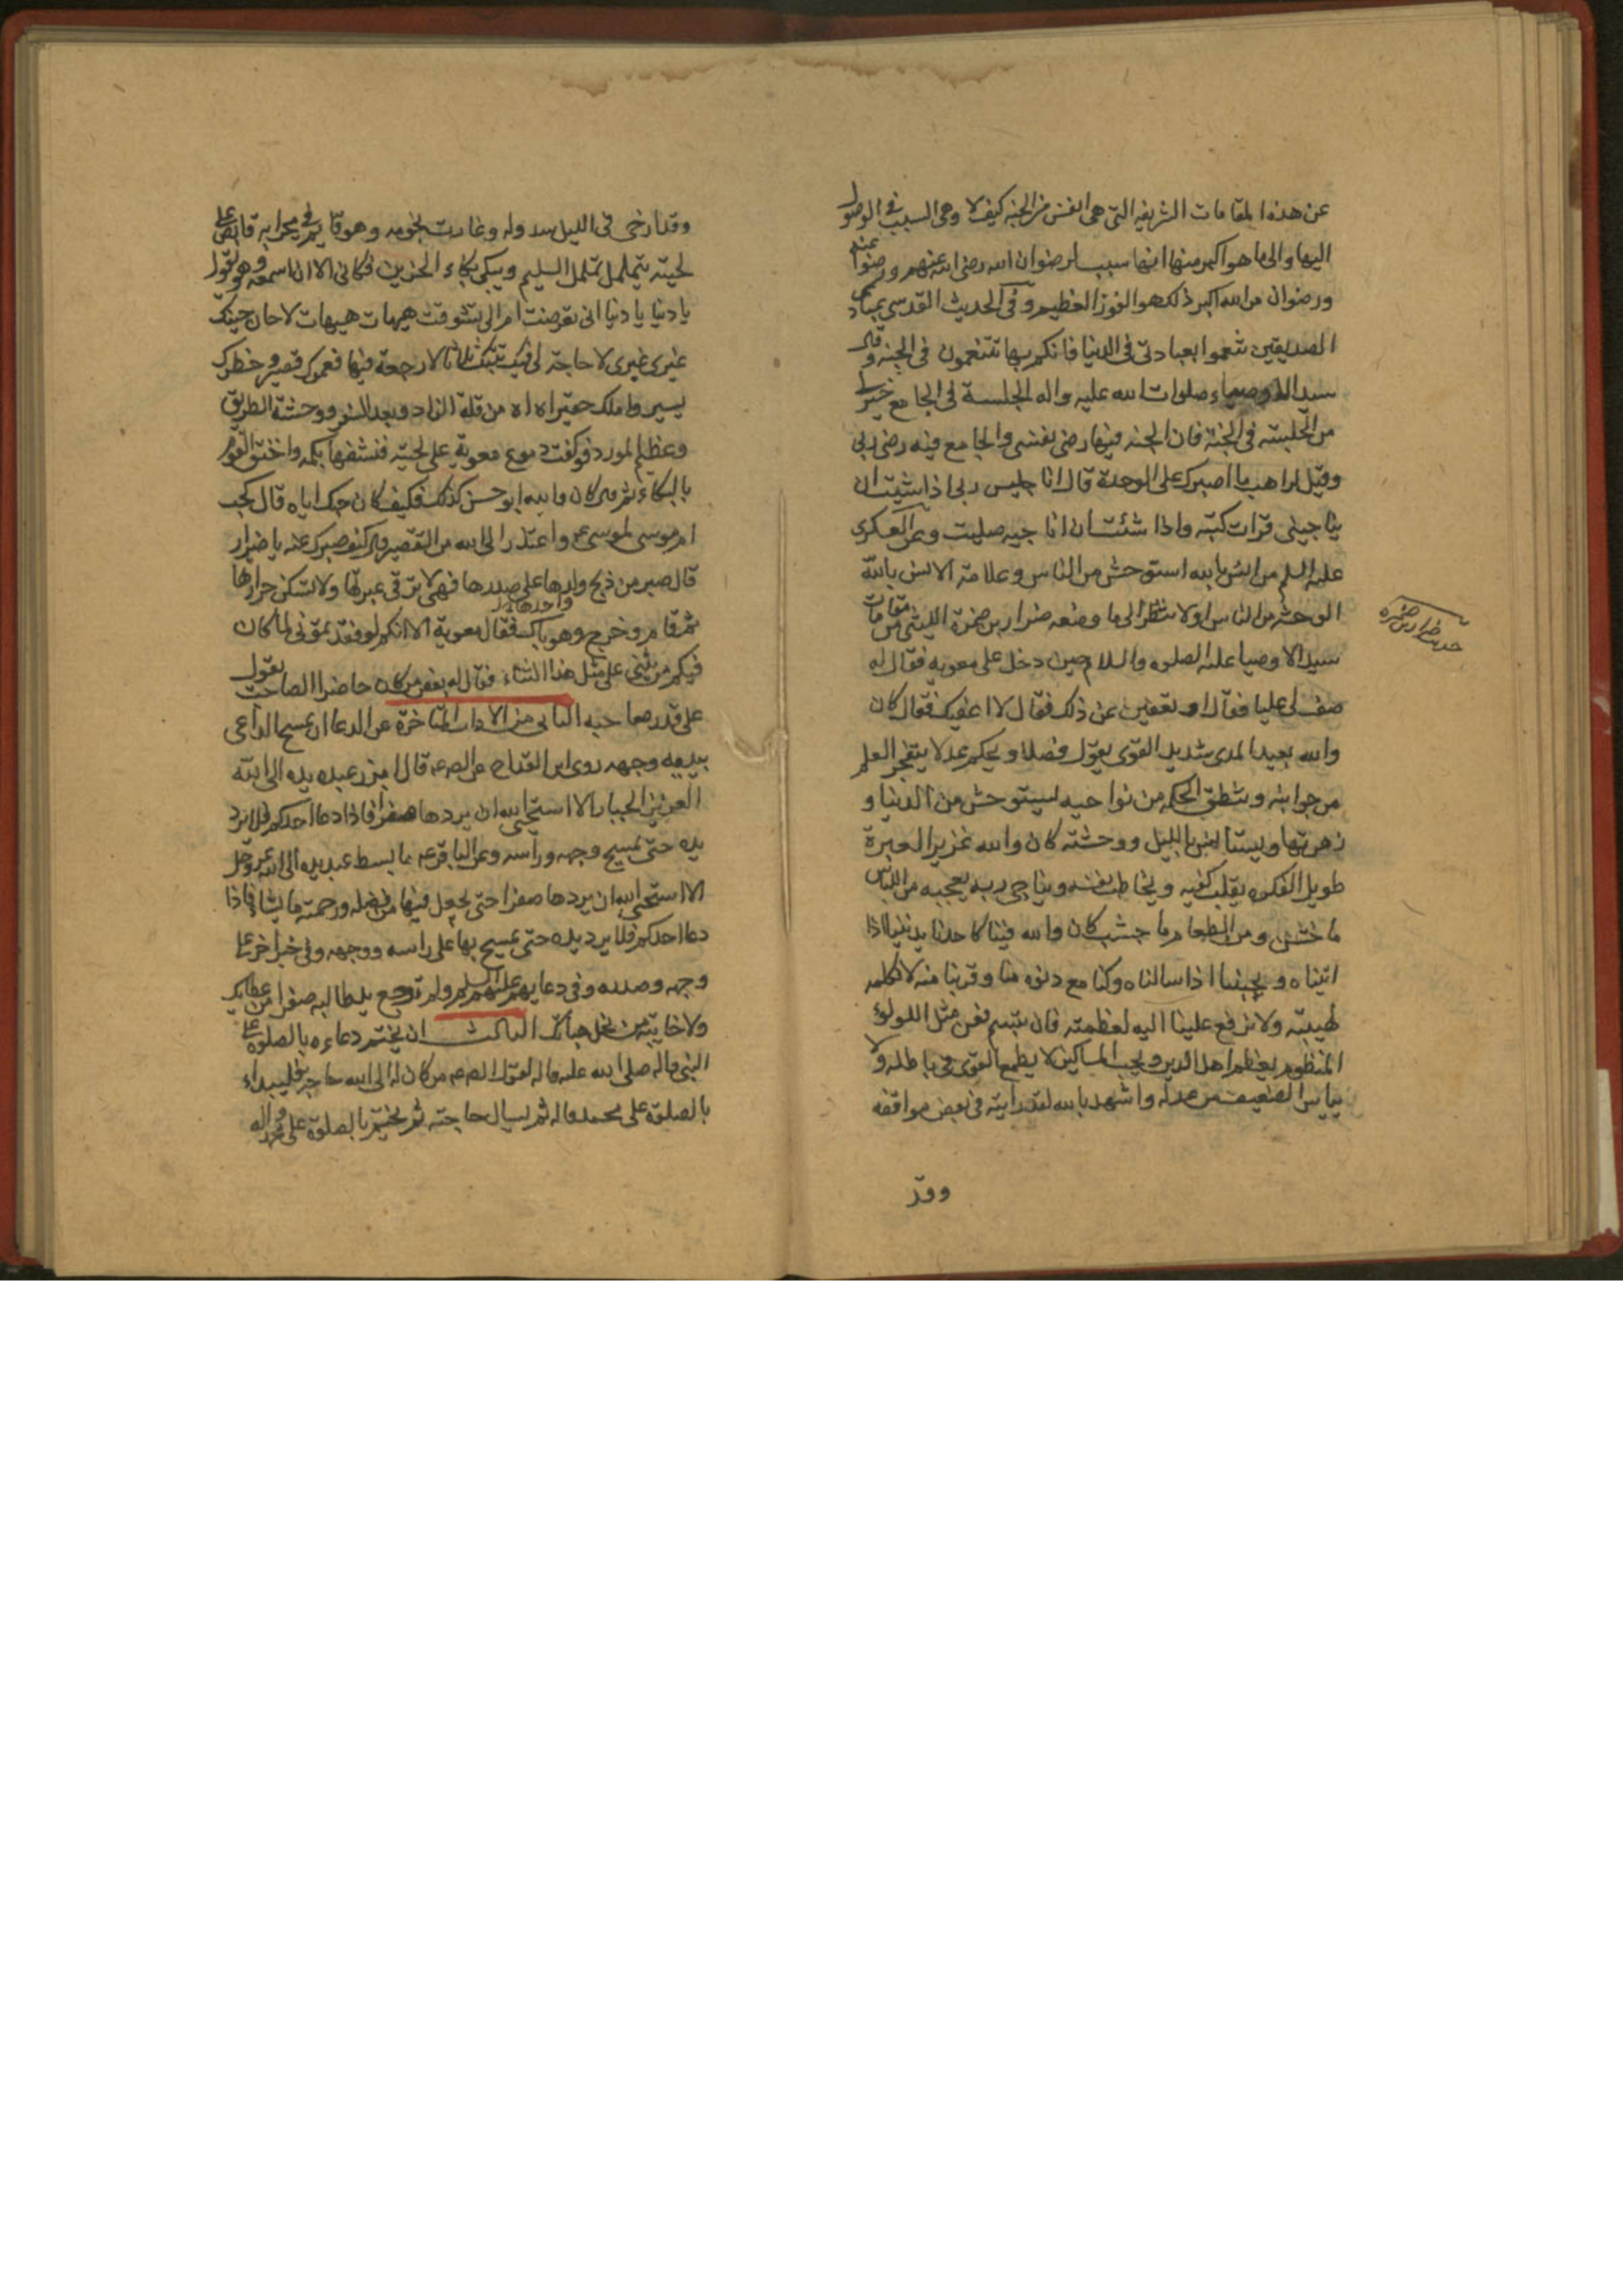 عن هذه المقامات الشريفه التى هى انفس من الجنه كيف لا وهى السبب فى الوصول
اليها والى ما هو اكبر منها انها سبب لرضوان الله رضى الله عنهم ورضوا عنه
ورضوان من الله اكبر ذلك هو الفوز العظيم وفى الحديث القدسى عبادى
الصديقين تنعموا بعبادتى فى الدنيا فانكم بها تتنعمون فى الجنه وقال
سيد الاوصياء صلوات الله عليه واله الجلسة فى الجامع خير لى
من الجلسته فى الجنة فان الجنه فيها رضى نفسى والجامع فيه رضى ربى
وقيل لراهب ما اصبرك على الوحدة قال انا جليس ربى اذا شئت ان
يناجينى قرات كتبه واذا شئت ان اناجيه صليت وعن العسكرى
عليه السلم من انس بالله استوحش من الناس وعلامة الانس بالله
الوحشه من الناس اولا تنظر الى ما وصفه ضرار بن ضمرة الليثى من مقامات
حديث ضرار بن ضمره
سيد الاوصيا عليه الصلوه والسلام حين دخل على معويه فقال له
صف لى عليا فقال او تعفين عن ذلك فقال لا اعفيك فقال كان
والله بعيد المدى شديد القوى يقول فصلا ويحكم عدلا يتفجر العلم
من جوانبه وينطق الحكم من نواحيه يستوحش من الدنيا و
زهرتها ويستانس بالليل ووحشته كان والله غزير العبرة
طويل الفكره يقلب كفيه ويخاطب نفسه ويناجى ربه يعجبه من اللباس
ما خشن ومن الطعام ما جشب كان والله فينا كاحدنا يدنينا اذا
اتيناه ويجيبنا اذا سالناه وكنا مع دنوه منا وقربنا منه لا نكلمه
لهيبته ولا نرفع عليننا اليه لعظمته فان تبسم فعن مثل اللولوء
المنظوم يعظم اهل الدين ويحب المساكين لا يطمع القوى فى باطله ولا
يياس الضعيف من عدله واشهد بالله لقد رايته فى بعض مواقفه
وقد
وقد ارخى فى الليل سدوله وغارت نجومه وهو قايم فى محرابه قابض على
لحيته يتململ تململ السليم ويبكى بكاء الحزين فكانى الان اسمعه وهو يقول
يا دنيا يا دنيا الى تعرضت ام الى تشوقت هيهات هيهات لا حان حينك
غيرى غيرى لا حاجة لى فيك تبتك ثلاثا لا رجعة فيها فعمرك قصير وخطرك
يسير واملك حقير اه اه من قلة الزاد وبعد السفر ووحشة الطريق
وعظيم المورد فوكفت دموع معوية على لحيته فنشفها بكمه واختنق القوم
بالبكاء ثم قال كان والله ابو حسن كذلك فكيف كان حبك اياه قال كحب
ام موسى لموسى ع واعتذر الى الله من التقصير قال كيف صبرك عنه يا ضرار
قال صبر من ذبح ولدها على صدرها فهى لا ترقى عبرتها ولا تسكن حرارتها
واحدها
ثم قام وخرج وهو باك فقال معوية اما انكم لو فقدتمونى لما كان
فيكم من يثنى على مثل هذا الثناء فقال له بعض من كان حاضرا الصاحب يقول
على قدر صاحبه الثانى من الاداب المتاخرة عن الدعا ان يمسح الداعى
بيديه وجهه روى ابن القداح عن الص ع قال ما ابرز عبد يده الى الله
العزيز الجبار الا استحيى الله ان يردها صفرا فاذا دعا احدكم فلا يرد
يده حتى يمسح وجهه وراسه وعن الباقر ع ما بسط عبد يده الى الله عز وجل
الا استحيى الله ان يردها صفرا حتى يجعل فيها من فضله ورحمته ما يشاء فاذا
دعا احدكم فلا يرد يده حتى يمسح بها على راسه ووجهه وفى خبر اخر على
وجهه وصدره وفى دعايهم عليهم السلم ولم ترجع يد طالبه صفرا من عطايك
ولا خايبه من نحل هباتك الثالث ان يختم دعاءه بالصلوة على
النبى واله صلى الله عليه واله لقول الص ع من كان له الى الله حاجة فليبداء
بالصلوة على محمد واله ثم يسال حاجته ثم يختم بالصلوة على محمد واله